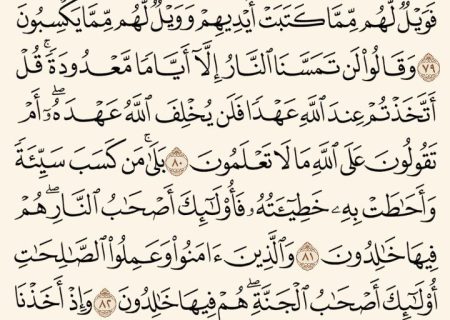 فَوَيْلٌ لَّهُم مِّمَّا كَتَبَتْ أَيْدِيهِمْ وَوَيْلٌ لَّهُم مِّمَّا يَكْسِبُونَ
٧٩ وَقَالُوا۟ لَن تَمَسَّنَا ٱلنَّارُ إِلَّآ أَيَّامًا مَّعْدُودَةً ۚ قُلْ
أَتَّخَذْتُمْ عِندَ ٱللَّهِ عَهْدًا فَلَن يُخْلِفَ ٱللَّهُ عَهْدَهُۥٓ ۖ أَمْ
تَقُولُونَ عَلَى ٱللَّهِ مَا لَا تَعْلَمُونَ ٨٠ بَلَىٰ ۚ مَن كَسَبَ سَيِّئَةً
وَأَحَـٰطَتْ بِهِۦ خَطِيٓـَٔتُهُۥ فَأُو۟لَـٰٓئِكَ أَصْحَـٰبُ ٱلنَّارِ ۖ هُمْ
فِيهَا خَـٰلِدُونَ ٨١ وَٱلَّذِينَ ءَامَنُوا۟ وَعَمِلُوا۟ ٱلصَّـٰلِحَـٰتِ
أُو۟لَـٰٓئِكَ أَصْحَـٰبُ ٱلْجَنَّةِ ۖ هُمْ فِيهَا خَـٰلِدُونَ ٨٢ وَإِذْ أَخَذْنَا